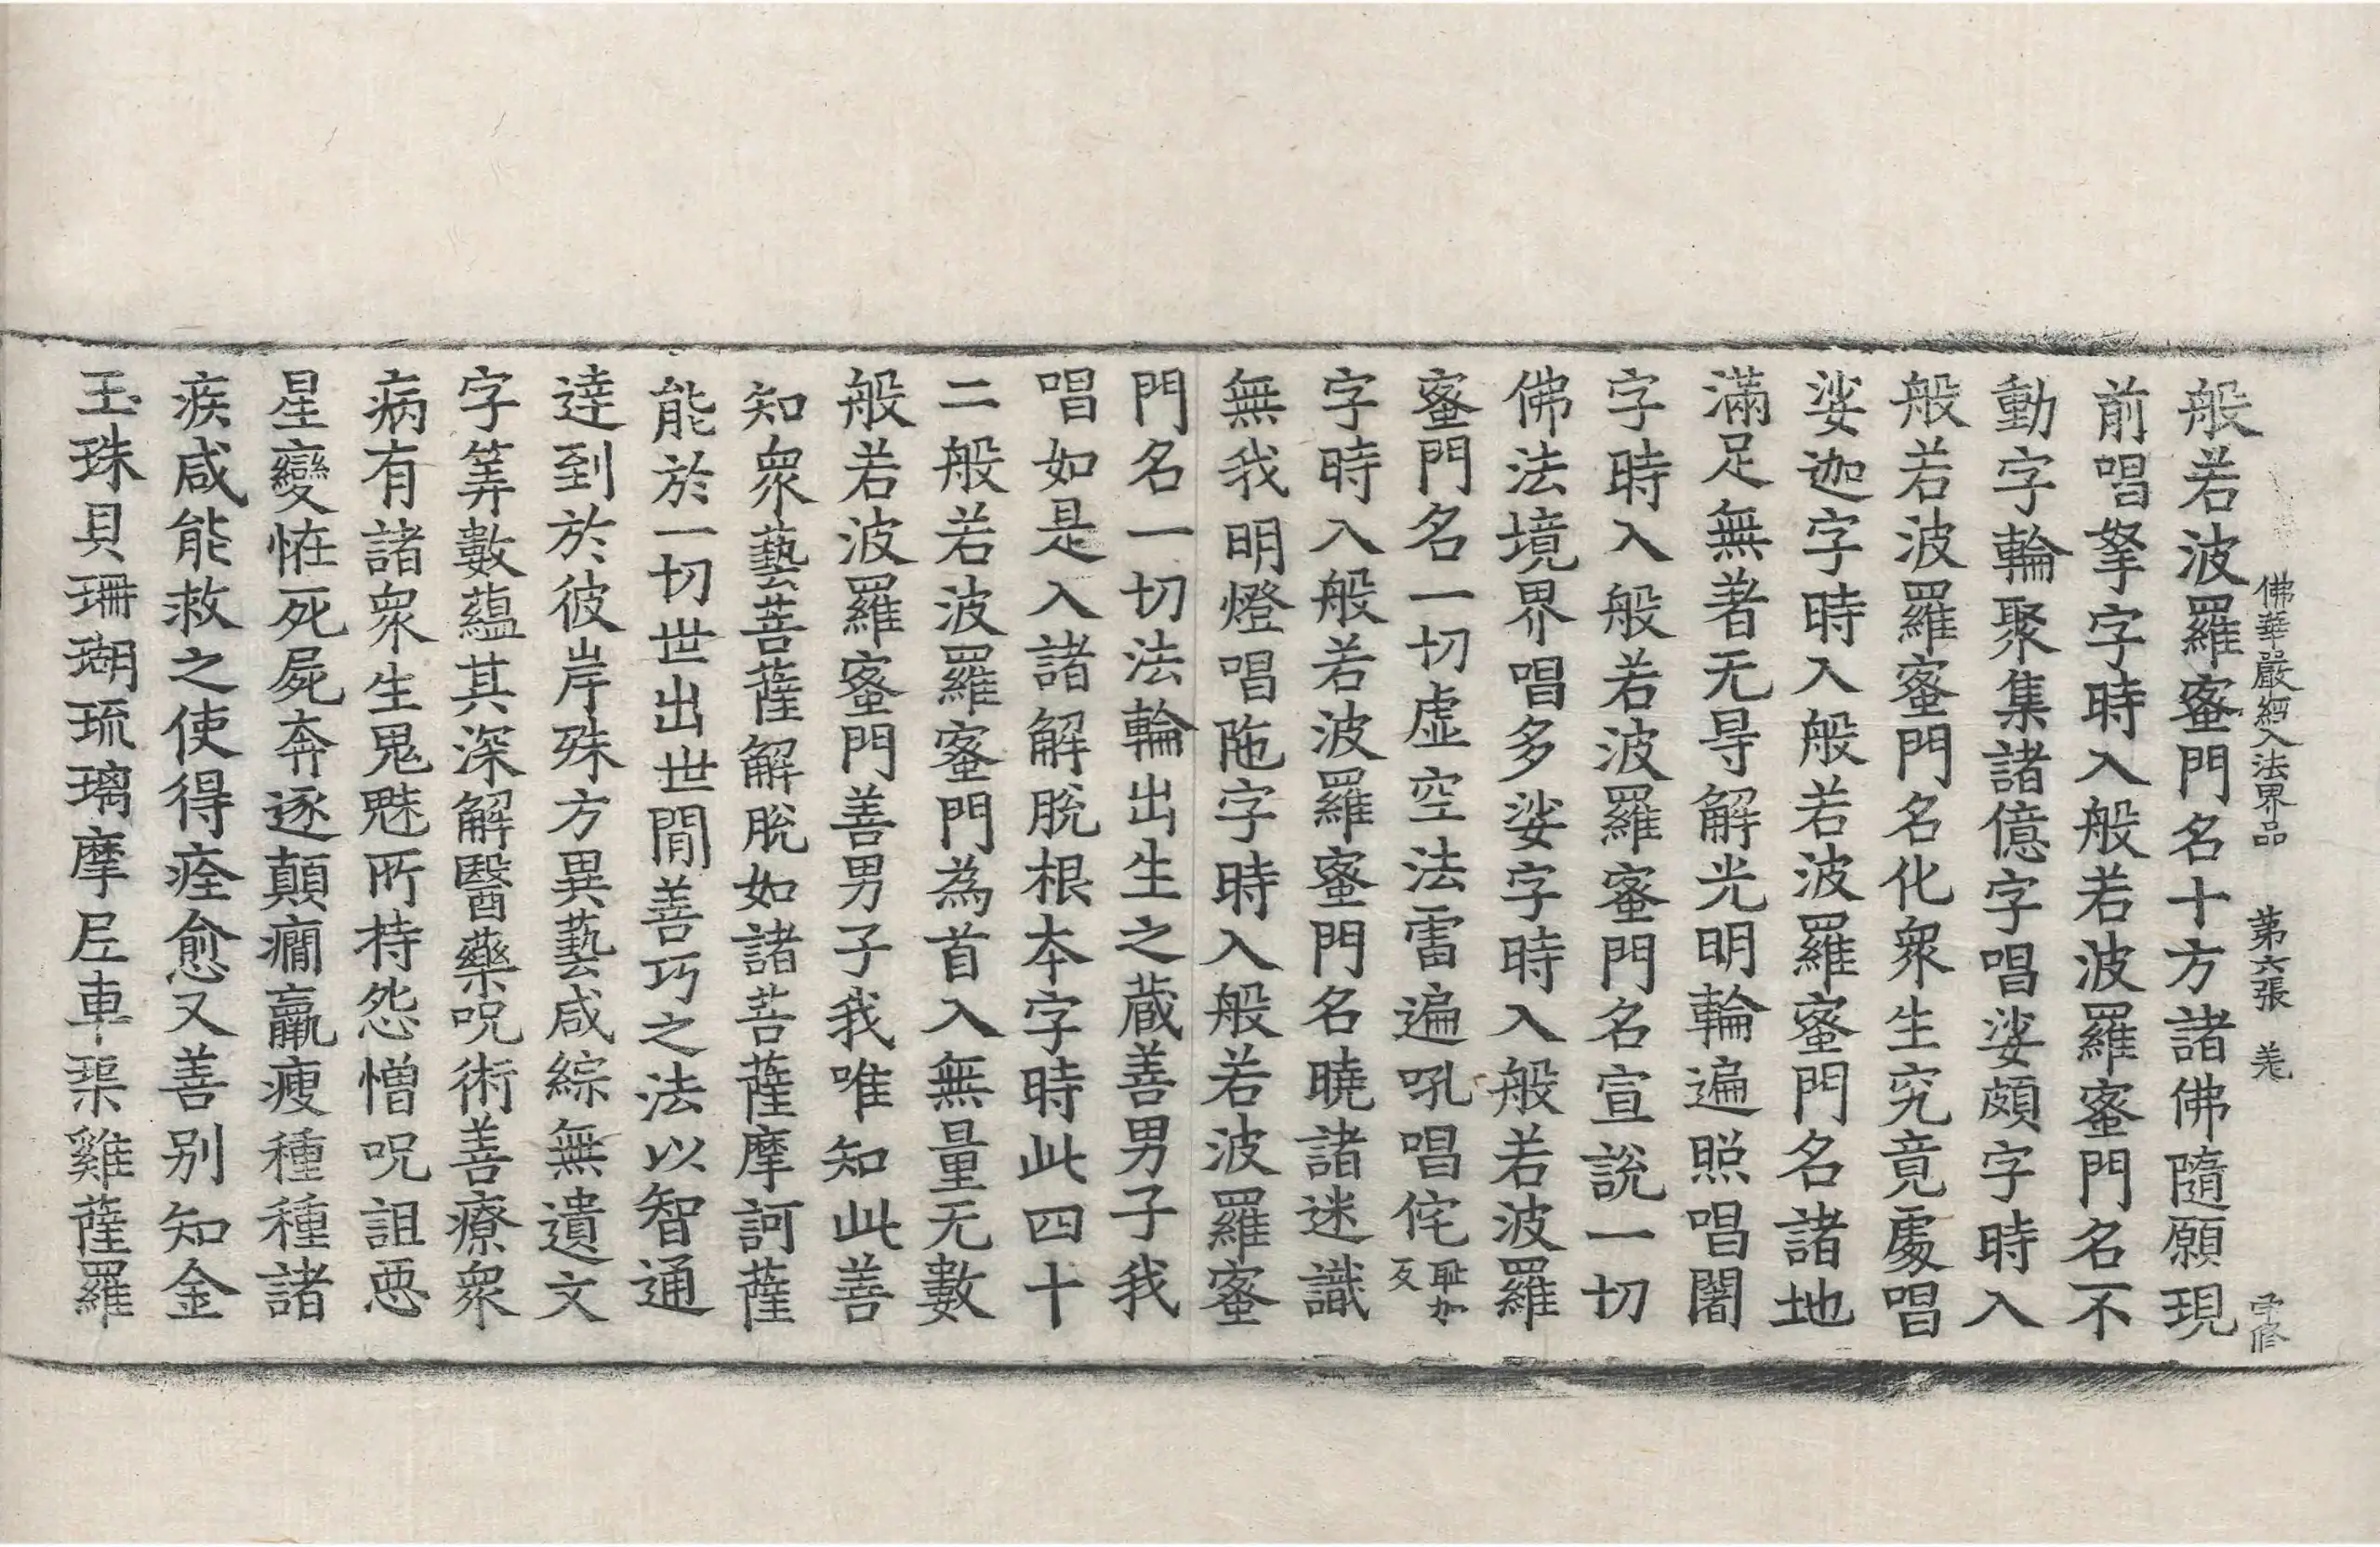 佛華嚴經入法界品　第六張　羌　字修
般若波羅蜜門名十方諸佛隨願現
前唱拏字時入般若波羅蜜門名不
動字輪聚集諸億字唱娑頗字時入
般若波羅蜜門名化衆生究竟處唱
娑迦字時入般若波羅蜜門名諸地
滿足無著无㝵解光明輪遍照唱闍
字時入般若波羅蜜門名宣說一切
佛法境界唱多娑字時入般若波羅
蜜門名一切虛空法雷遍吼唱侘耻加反
字時入般若波羅蜜門名曉諸迷識
無我明燈唱陁字時入般若波羅蜜
門名一切法輪出生之藏善男子我
唱如是入諸解脫根本字時此四十
二般若波羅蜜門為首入無量无數
般若波羅蜜門善男子我唯知此善
知衆藝菩薩解脫如諸菩薩摩訶薩
能於一切世出世間善巧之法以智通
達到於彼岸殊方異藝咸綜無遺文
字筭數蘊其深解醫藥呪術善療衆
病有諸衆生鬼魅所持怨憎呪詛惡
星變恠死屍奔逐顛癎羸瘦種種諸
疾咸能救之使得痊愈又善別知金
玉珠貝珊瑚琉璃摩尼車渠雞薩羅